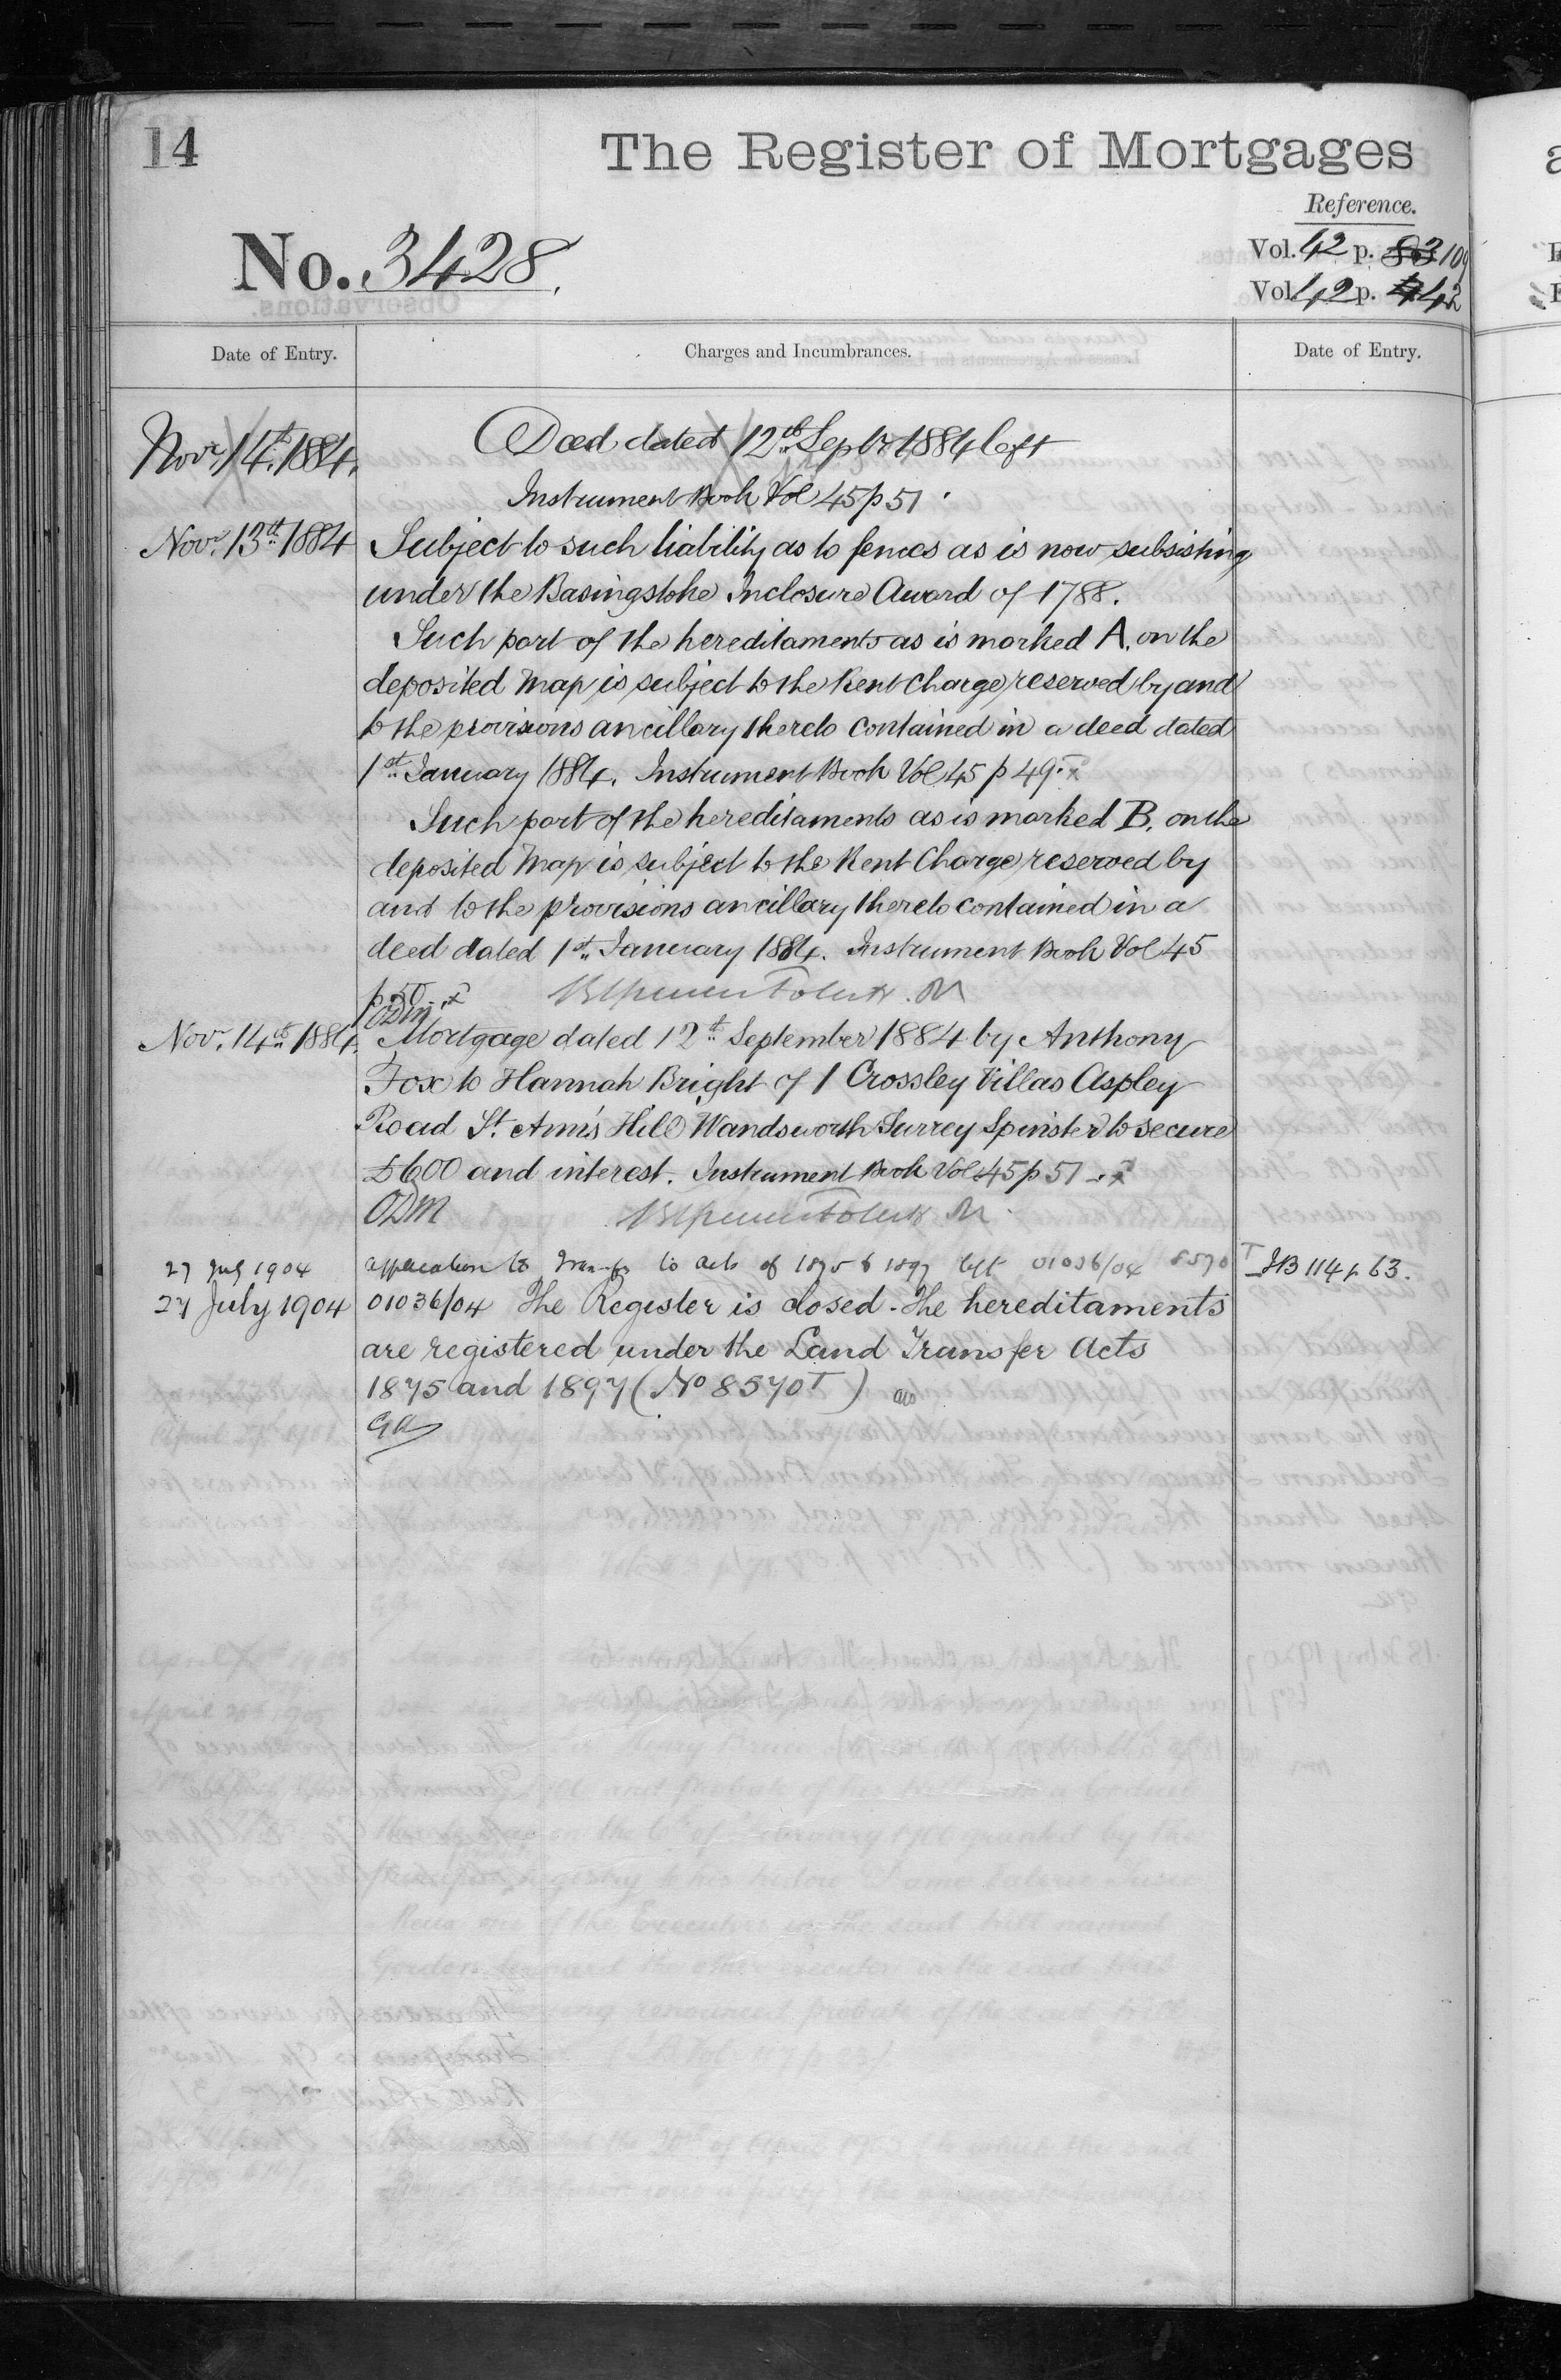 14
The Register of Mortgages
Reference.
No. 3428.
Vol. 42 p. 83 109
Vol. 42 p. 42
Date of Entry.
Charges and Incumbrances.
Date of Entry.
Novr. 14th 1884.
Deed dated 12th Septr 1884 left
Instrument Book Vol 45 p 51.
Novr. 13th 1884
Subject to such liability as to fences as is now subsisting
under the Basingstoke Inclosure Award of 1788.
Such part of the hereditaments as is marked A. on the
deposited Map is subject to the Rent Charge reserved by and
to the provisions ancillary thereto contained in a deed dated
1st January 1884. Instrument Book Vol 45 p 49.
Such part of the hereditaments as is marked B. on the
deposited Map is subject to the Rent Charge reserved by
and to the provisions ancillary thereto contained in a
deed dated 1st January 1884. Instrument Book Vol 45
p 50.
ODM
Nov. 14th 1884.
Mortgage dated 12th September 1884 by Anthony
Fox to Hannah Bright of 1 Crossley Villas Aspley
Road St. Ann's Hill Wandsworth Surrey Spinster to secure
£600 and interest. Instrument Book Vol 45 p 51
ODM
27 July 1904
application to Transfer to acts of 1875 & 1897 left 01036/04 8570 T
IB 114 p 63.
27 July 1904
01036/04 The Register is closed. The hereditaments
are registered under the Land Transfer Acts
1875 and 1897 (No 8570 T)